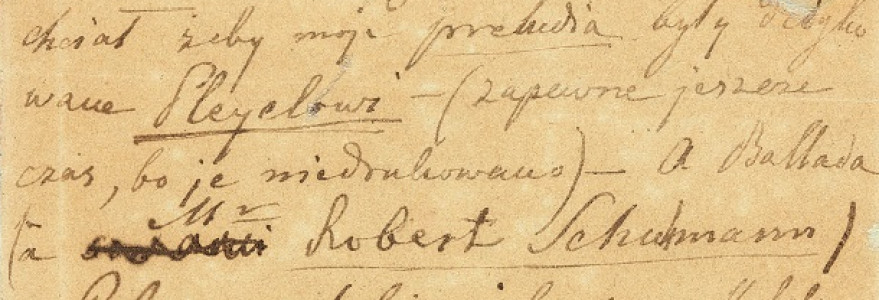 chciał żeby moje preludia były dedyko
wane Pleyelowi – (zapewne jeszcze
czas, bo je niedrukowano) – A Ballada
Mr
(à Robert Schuhmann)